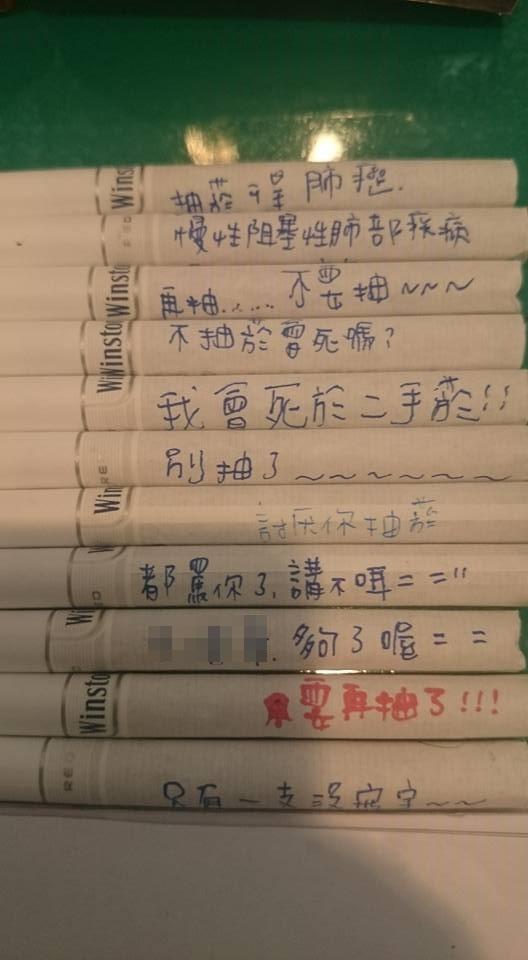 Wins 抽菸得肺癌.
慢性阻塞性肺部疾病
Winsto 再抽..... 不要抽~~~
Winsto 不抽菸會死嗎?
Wi 我會死於二手菸!!
RE 別抽了~~~~~~
Win 討厭你抽菸
都罵你了,講不聽= ="
Wi 夠了喔= =
Winsto 不要再抽了!!!
RE 只有一支沒寫字~~